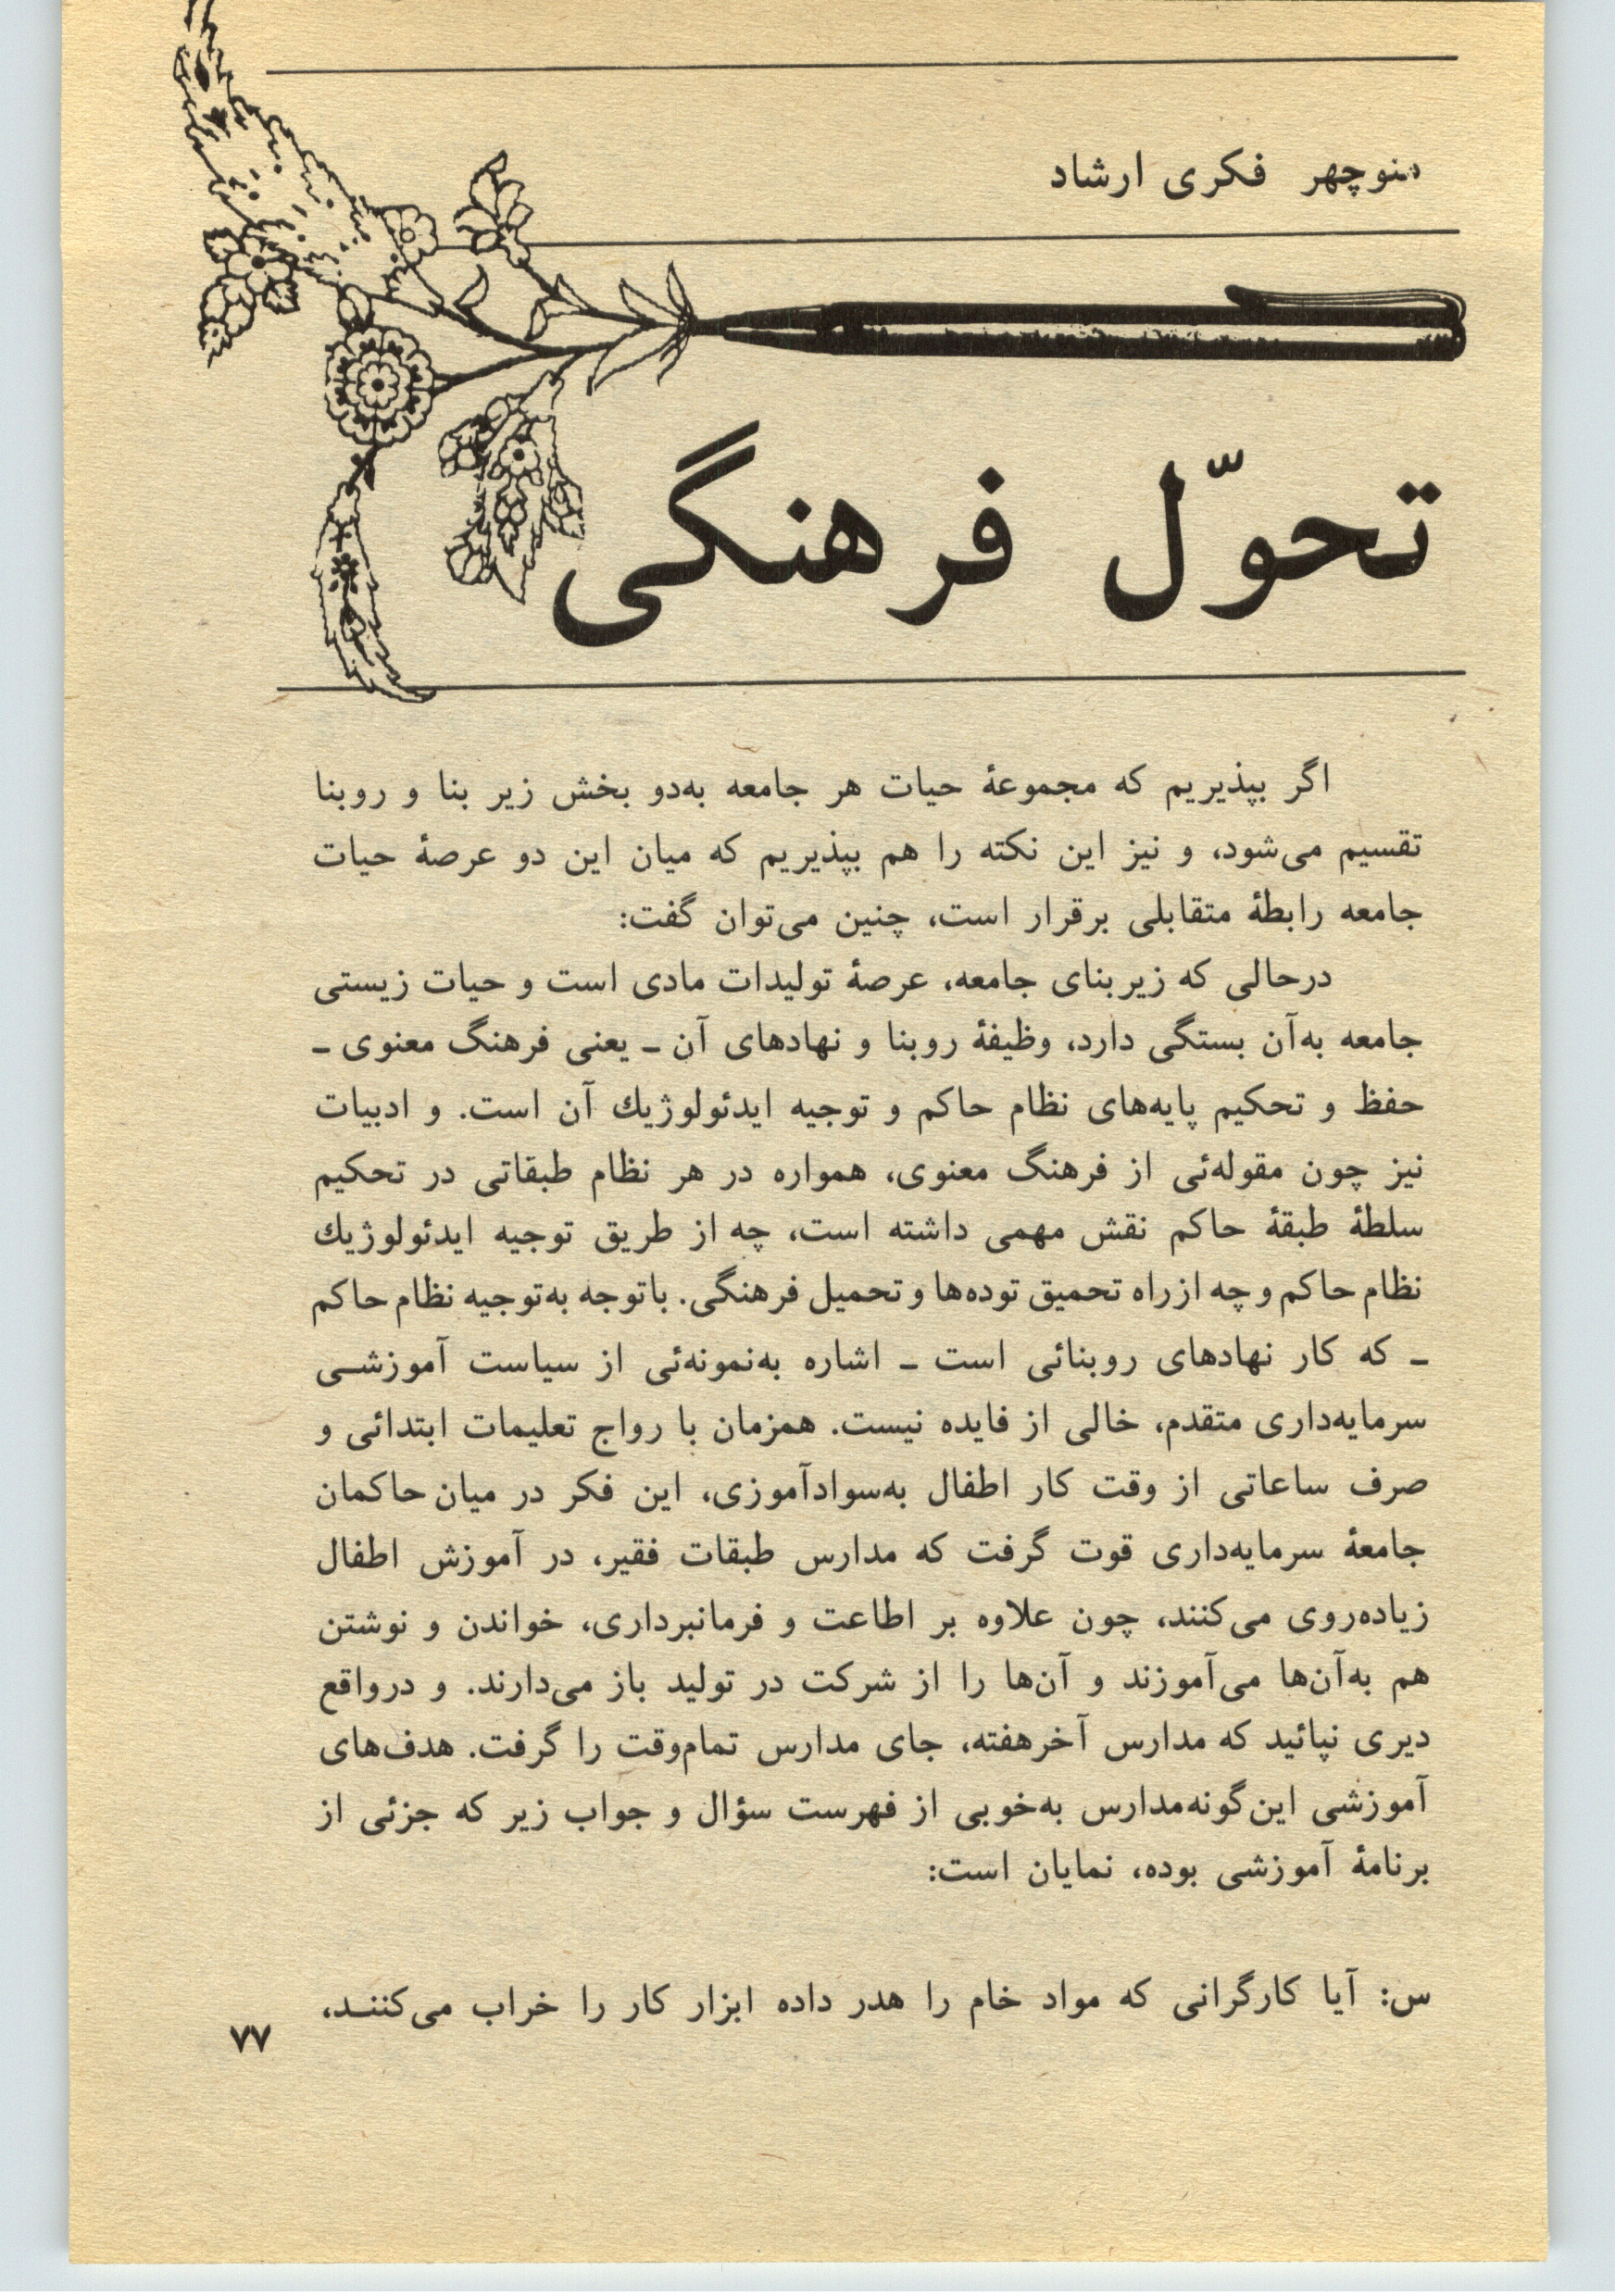 منوچهر فکری ارشاد
تحوّل فرهنگی
اگر بپذیریم که مجموعهٔ حیات هر جامعه به‌دو بخش زیر بنا و روبنا
تقسیم می‌شود، و نیز این نکته را هم بپذیریم که میان این دو عرصهٔ حیات
جامعه رابطهٔ متقابلی برقرار است، چنین می‌توان گفت:
درحالی که زیربنای جامعه، عرصهٔ تولیدات مادی است و حیات زیستی
جامعه به‌آن بستگی دارد، وظیفهٔ روبنا و نهادهای آن ـ یعنی فرهنگ معنوی ـ
حفظ و تحکیم پایه‌های نظام حاکم و توجیه ایدئولوژیك آن است. و ادبیات
نیز چون مقوله‌ئی از فرهنگ معنوی، همواره در هر نظام طبقاتی در تحکیم
سلطهٔ طبقهٔ حاکم نقش مهمی داشته است، چه از طریق توجیه ایدئولوژیك
نظام حاکم و چه از راه تحمیق توده‌ها و تحمیل فرهنگی. باتوجه به‌توجیه نظام حاکم
ـ که کار نهادهای روبنائی است ـ اشاره به‌نمونه‌ئی از سیاست آموزشـی
سرمایه‌داری متقدم، خالی از فایده نیست. همزمان با رواج تعلیمات ابتدائی و
صرف ساعاتی از وقت کار اطفال به‌سوادآموزی، این فکر در میان حاکمان
جامعهٔ سرمایه‌داری قوت گرفت که مدارس طبقات فقیر، در آموزش اطفال
زیاده‌روی می‌کنند، چون علاوه بر اطاعت و فرمانبرداری، خواندن و نوشتن
هم به‌آن‌ها می‌آموزند و آن‌ها را از شرکت در تولید باز می‌دارند. و درواقع
دیری نپائید که مدارس آخرهفته، جای مدارس تمام‌وقت را گرفت. هدف‌های
آموزشی این‌گونه‌مدارس به‌خوبی از فهرست سؤال و جواب زیر که جزئی از
برنامهٔ آموزشی بوده، نمایان است:
س: آیا کارگرانی که مواد خام را هدر داده ابزار کار را خراب می‌کننـد،
۷۷